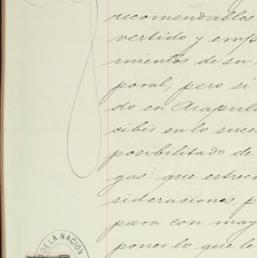 recomendables
vertido y emp
mientos de su
poral, pero si
do en Acapul
cibir en lo suce
posibilitado de
gas: que estrec
sideraciones p
para con may
poner lo que le
DE LA NACION